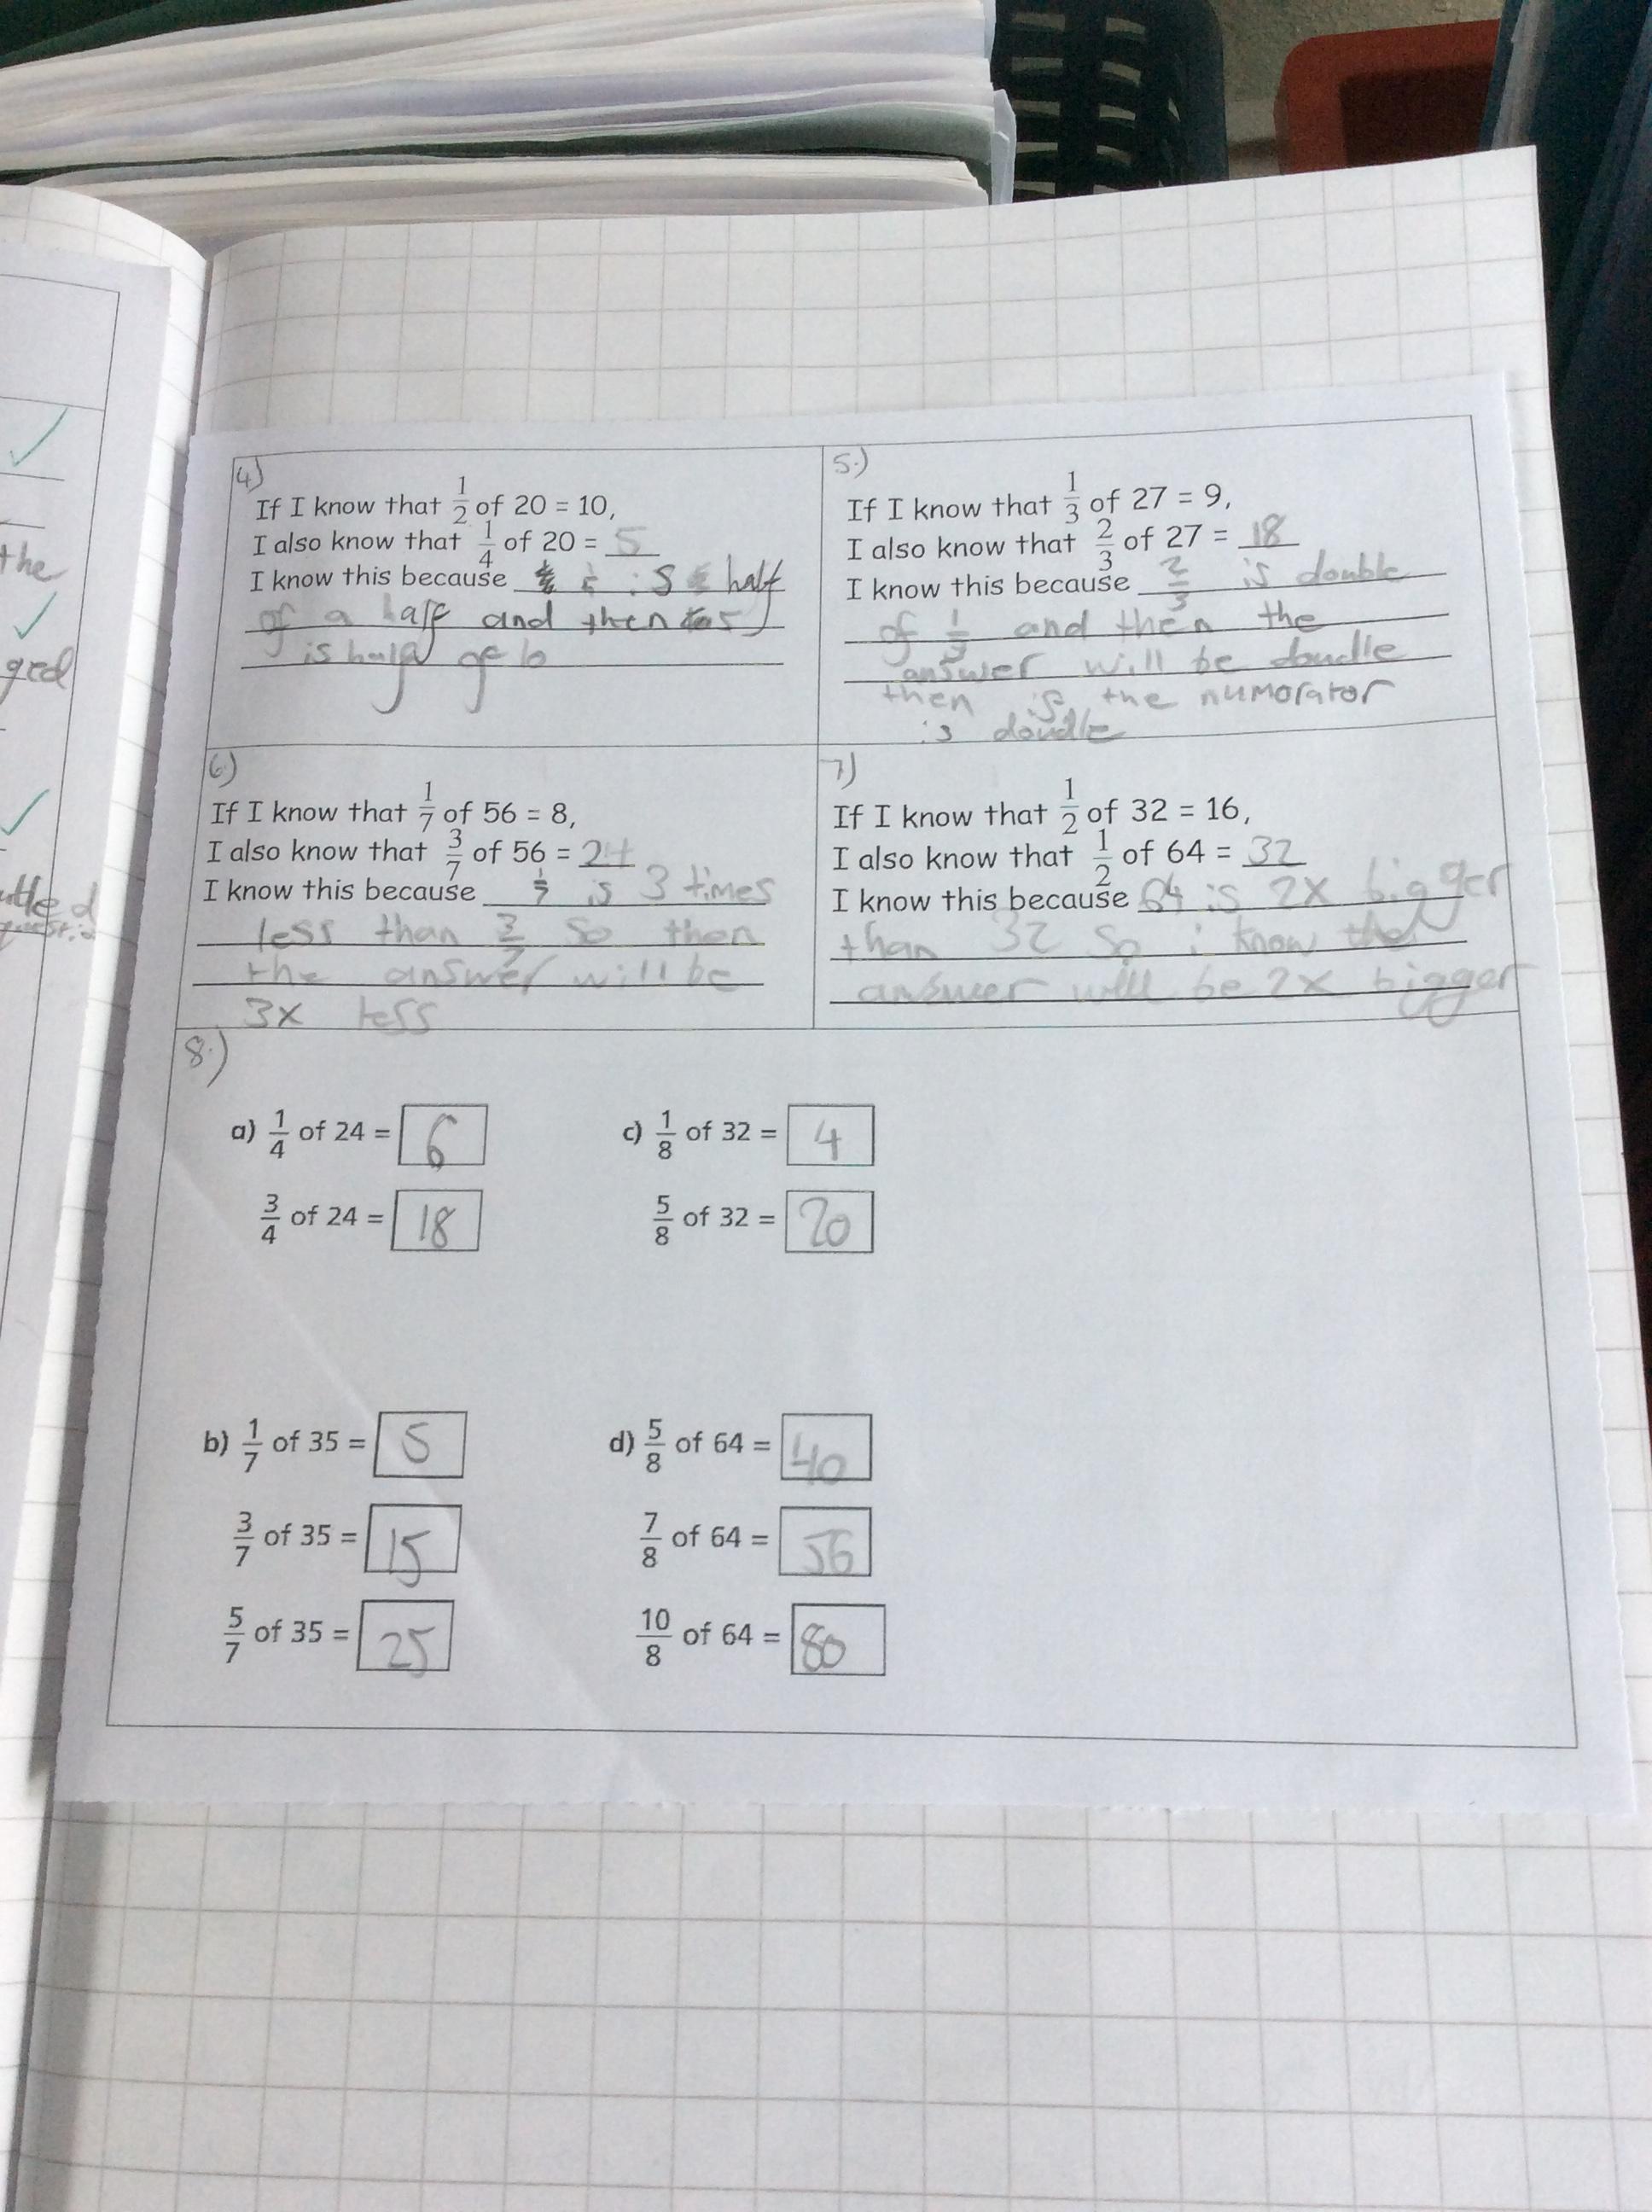 the
ged
4)
If I know that 1/2 of 20 = 10,
I also know that 1/4 of 20 = 5
I know this because is half
of a half and then 5
is half of 10
5.)
If I know that 1/3 of 27 = 9,
I also know that 2/3 of 27 = 18
I know this because 2/3 is double
of 1/3 and then the
answer will be doudle
then is the numorator
is doudle
6)
If I know that 1/7 of 56 = 8,
I also know that 3/7 of 56 = 24
I know this because 1/7 is 3 times
less than 3/7 so then
the answer will be
3x less
7)
If I know that 1/2 of 32 = 16,
I also know that 1/2 of 64 = 32
I know this because 64 is 2x bigger
than 32 so i know the
answer will be 2x bigger
8.)
a) 1/4 of 24 = 6
3/4 of 24 = 18
c) 1/8 of 32 = 4
5/8 of 32 = 20
b) 1/7 of 35 = 5
3/7 of 35 = 15
5/7 of 35 = 25
d) 5/8 of 64 = 40
7/8 of 64 = 56
10/8 of 64 = 80